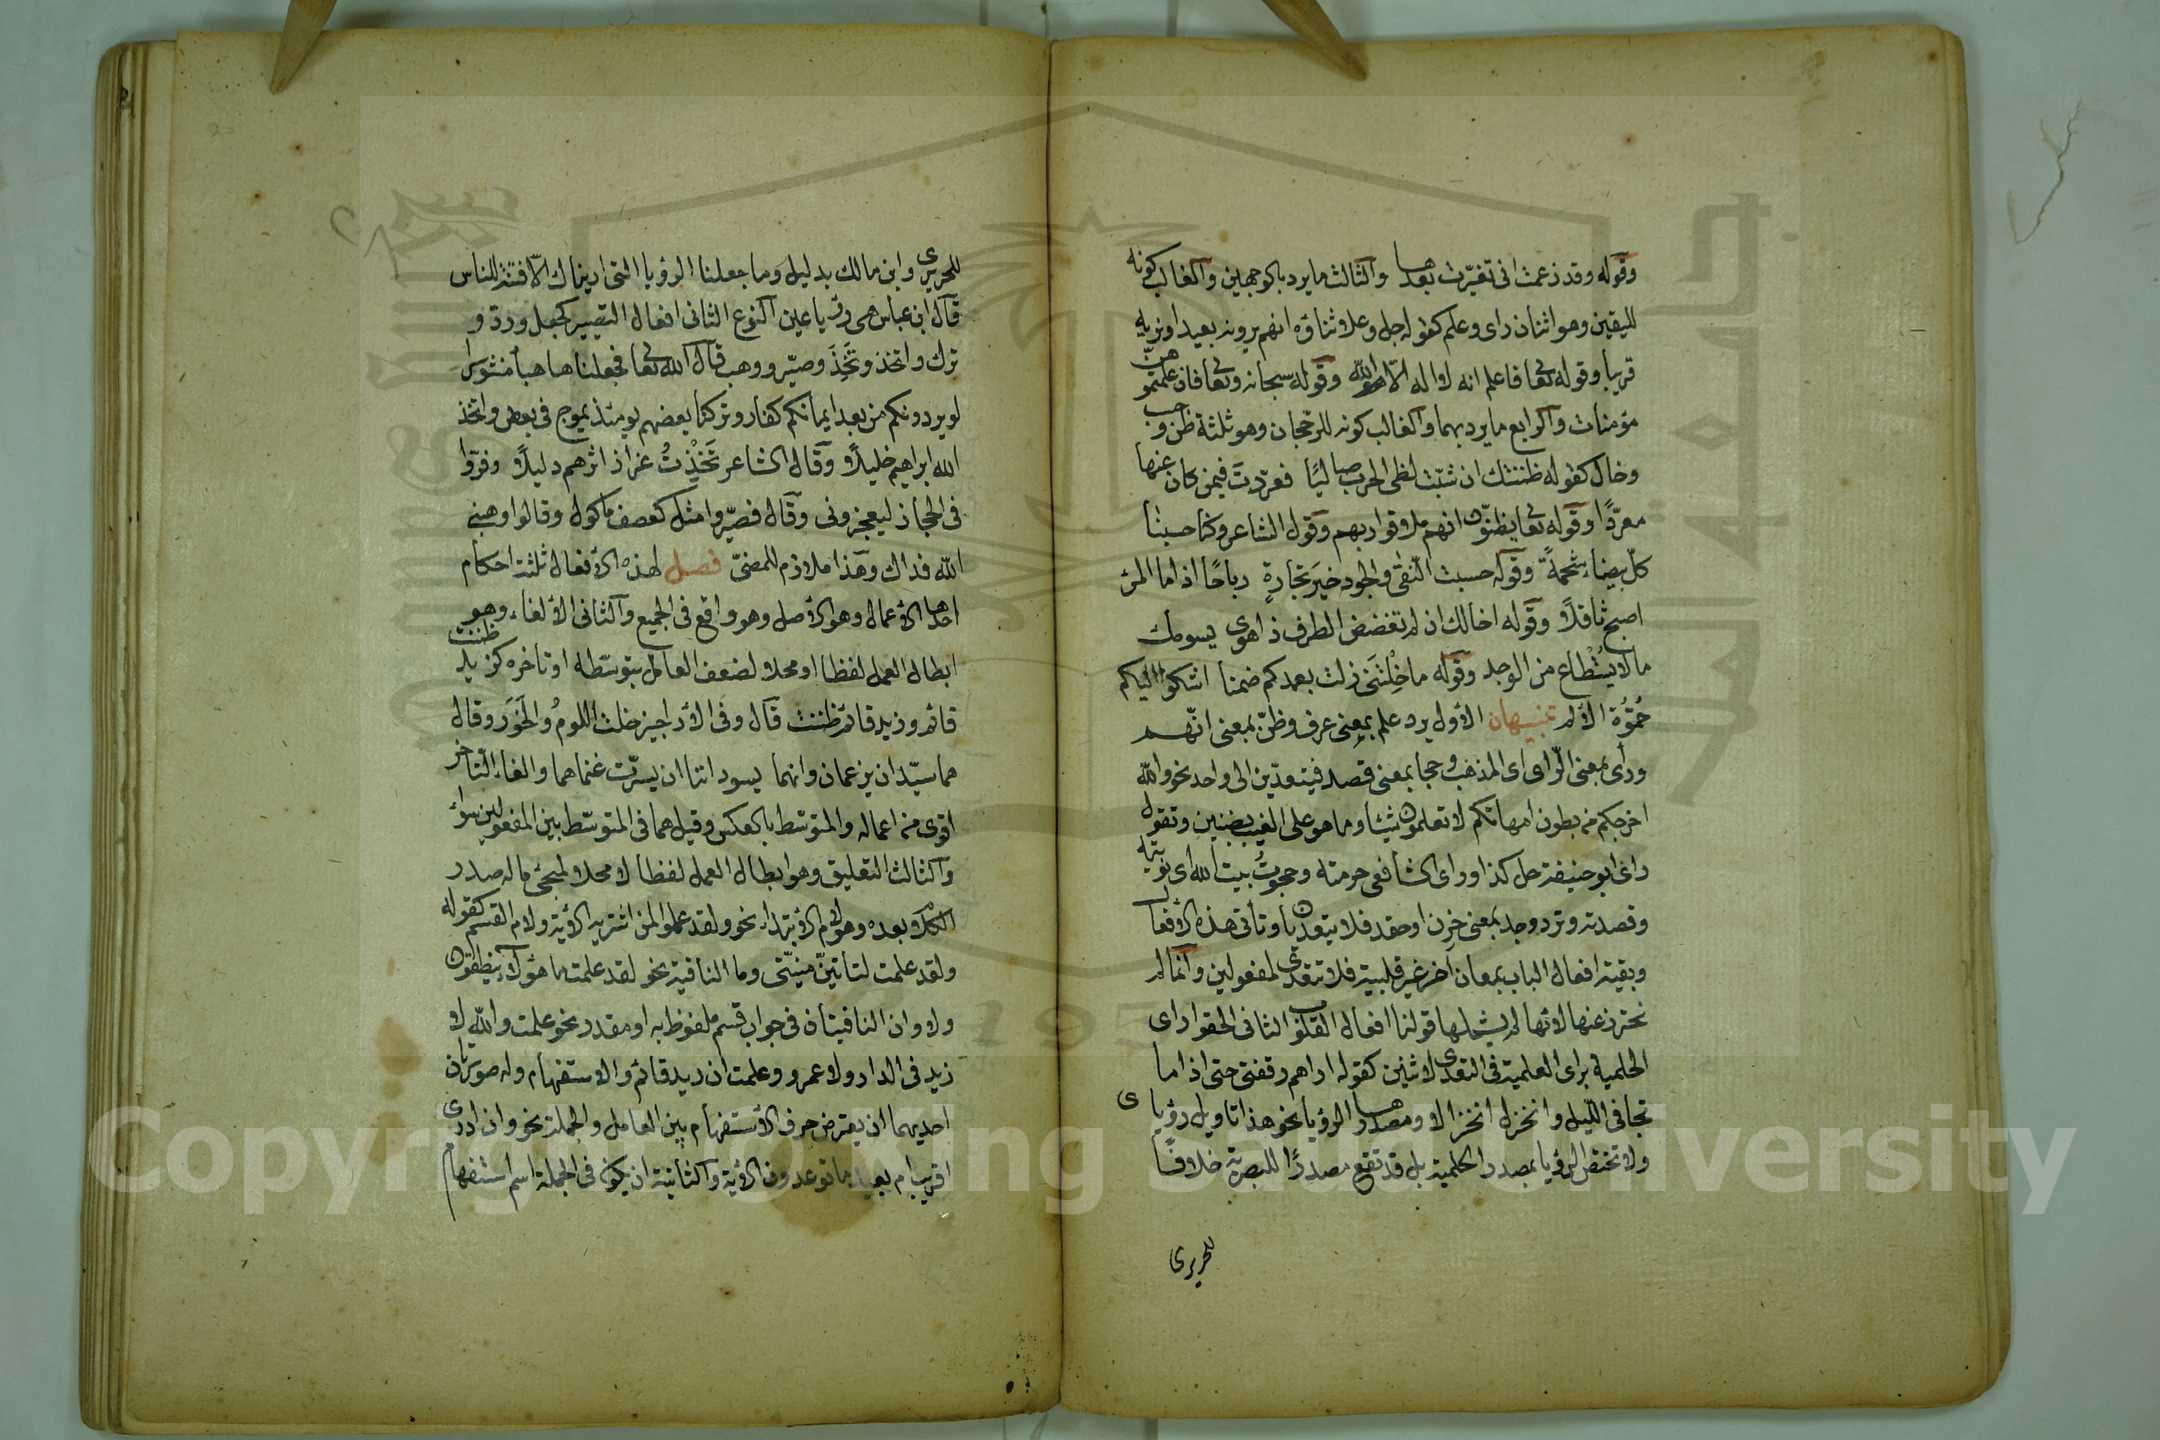 وقوله وقد زعمت انى تغيّرت بعدها والثالث ما يرد بالوجهين والغالب كونه
لليقين وهو اثنان راى وعلم كقوله جل وعلا ثناؤه انهم يرونه بعيدا ونريه
قريبا وقوله تعا فاعلم انه لا اله الّا الله وقوله سبحانه وتعا فان علمتموهنّ
مؤمنات والرابع ما يرد بهما والغالب كونه للرّجحان وهو ثلثة ظن وحسب
وخال كقوله ظننتك ان شبّت لظى الحرب صاليًا فعرّدت فيمن كان عنها
معرّدًا وقوله تعا يظنّون انهم ملاقوا ربهم وقول الشاعر وكنا حسبنا
كلّ بيضاء شحمةً وقوله حسبت التّقى والجود خيَر تجارةٍ رباحًا اذا ما المرٔ
اصبح ثاقلًا وقوله اخالك ان لم تغضض الطرف ذا هوى يسومك
مالا يسُتْطاع من الوجد وقوله ما خِلْتَنى زلت بعدكم ضمنا اشكوا اليكم
حُمُوَّة الألم تنبيهان الأول يرد علم بمعنى عرف وظنّ بمعنى اتّهم
ورأى بمعنى الرّاى اى المذهب وحجا بمعنى قصد فيتعدّين الى واحد نحو والله
اخرجكم من بطون امهاتكم لا تعلمون شيئا وما هو على الغيب بضنين وتقول
راى ابو حنيفة حل كذا وراى الشافعى حرمته وحجوتُ بيت الله اى نويته
وقصدته وترد وجد بمعنى حزن او حقد فلا يتعديان وتأتى هذه الافعال
وبقية افعال الباب بمعان اَخر غير قلبية فلا تتعدى لمفعولين وانما لم
نحترز عنها لانها لم يشملها قولنا افعال القلوب الثانى الحقوا راى
الحلمية برأى العلمية فى التعدى لاثنين كقوله اراهم رفقتى حتى اذا ما
تجافى الليل وانخزل انخزالا ومصدرها الرؤيا نحو هذا تاويل رؤياى
ولا تختص الرؤيا بمصدر الحلمية بل قد تقع مصدرًا للبصرية خلافًا
للحريرى
للحريرى وابن مالك بدليل وما جعلنا الرؤيا التى اريناك الّا فتنة للناس
قال ابن عباس هى رؤيا عين النوع الثانى افعال التصيير كجعل وردّ و
ترك واتخذ وتَخِذَ وصيّر ووهب قال الله تعا فجعلناها هباً منثورا
لو يردونكم من بعد ايمانكم كفارا وتركنا بعضهم يومئذ يموج فى بعض واتخذ
الله ابراهيم خليلًا وقال الشاعر تَخِذْتُ غراز اثرهم دليلًا وفرّوا
فى الحجاز ليعجزونى وقال فصيّروا مثل كعصف ماكول وقالوا وهبنى
الله فداك وهذا ملازم للمضىّ فصل لهذه الأفعال ثلثة احكام
احدها الأعمال وهو الأصل وهو واقع فى الجميع والثانى الألغاء وهو
ابطال العمل لفظا او محلا لضعف العامل بتوسّطه او تاخره كزيد ظننت
قائم وزيد قائم ظننت قال وفى الأراجيز خلت اللومُ والخَوَر وقال
هما سيّدان يزعمان وانما يسوداننا ان يسرّت غنماهما والغاء التاخر
اقوى من اعماله والمتوسّط بالعكس وقيل هما فى المتوسّط بين المفعولين سواء
والثالث التعليق وهو ابطال العمل لفظا لا محلا لمجئ ماله صدر
الكلام بعده وهو لام الأبتداء نحو ولقد علموا لمن اشتريه الأية ولام القسم كقوله
ولقد علمت لتاتينّ منيّتى وما النافية نحو لقد علمت ما هؤلاء ينطقون
ولا وان النافيتان فى جواب قسم ملفوظ به او مقدر نحو علمت والله لا
زيد فى الدار ولا عمرو وعلمت ان زيد قائم والاستفهام وله صورتان
احديهما ان يعترض حرف الأستفهام بين العامل والجملة نحو وان ادرى
اقريب ام بعيد ما توعدون الأية والثانية ان يكون فى الجملة اسم استفهام
Copyright © King Saud University